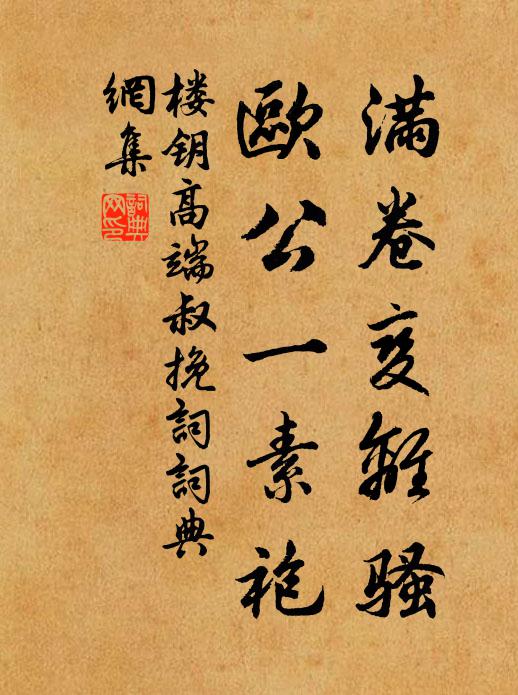 满卷变離骚
歐公一素袍
楼钥高端叔挽詞詞典
網集
詞典
网印